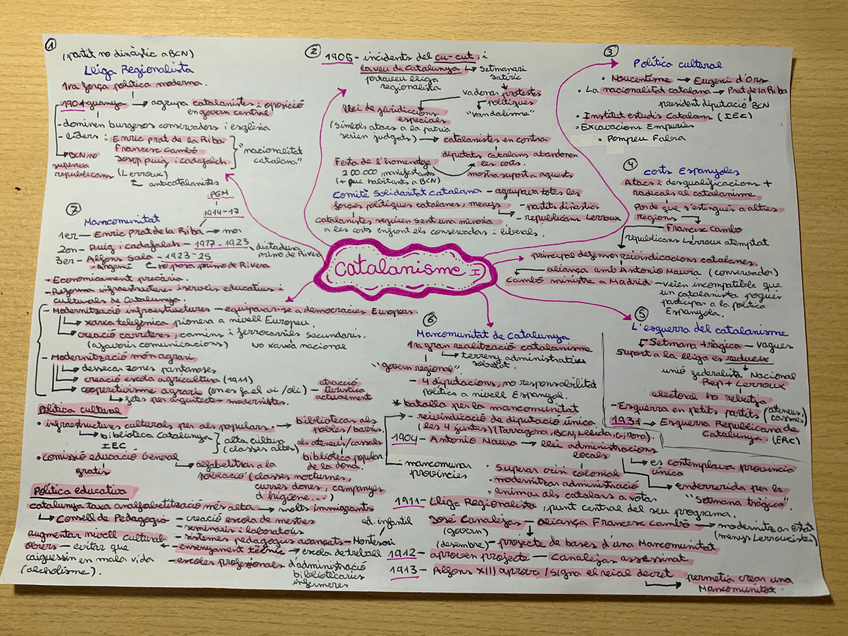 ①
(partit no dinàstic a BCN)
Lliga Regionalista
1ra força política moderna.
1901 guanya → agrupa catalanistes i oposició
en govern central
- dominen burgesos conservadors i església
- líders: Enric prat de la Riba
Francesc Cambó
Josep puig i cadafalch
"nacionalitat catalana"
→ BCN no
republicans (Lerroux)
↳ anticatalanistes
②
1905 - incidents del cu-cut i
la veu de Catalunya → Setmanari
satíric
regionalista
polítiques
"vandalisme"
llei de jurisdiccions
especials
(símbols atacs a la patria
serien jutjats) → catalanistes en contra
diputats catalans abandonen
les corts.
Festa de l'homenatge
200.000 manifestants
(+ que habitants a BCN) mostra suport a aquests
Comitè Solidaritat Catalana - agrupar totes les
forces polítiques catalanes menys - partits dinàstics
- republicans Lerroux
catalanistes seguien sent una minoria
a les corts enfront els conservados i liberals.
③
Política cultural
• Noucentisme → Eugeni d'Ors
• La nacionalitat catalana → Prat de la Riba
president diputació BCN
• Institut estudis Catalans (IEC)
• Excavacions Empúries
• Pompeu Fabra
④
Corts Espanyoles
Atacs i desqualificacions +
radicals al catalanisme.
Por de que s'estengués a altres
regions
Francesc Cambó
republicans Lerroux
principal defensor reivindicacions catalanes
aliança amb Antonio Maura (conservador)
Cambó ministre a Madrid - veien incompatible que
un catalanista pogués
participar a la política
Espanyola.
Catalanisme I
⑤
L'esquerra del catalanisme
Setmana tràgica - vagues
suport a la lliga es redueix
unió federalista Nacional
Rep + Lerroux
electoral no reeixit
- Esquerra en petits partits
1931 → Esquerra Republicana de
Catalunya. (ERC)
⑥
Mancomunitat de Catalunya
1a gran realització catalanisme
↳ terreny administratiu
"govern regional".
- 4 diputacions, no responsabilitat
política a nivell Espanyol.
* batalla per la mancomunitat
- reivindicació de diputació única
(les 4 juntes) (Tarragona, BCN, Lleida, Girona).
1904 - Antonio Maura → llei administracions
locals
mancomunar
províncies
→ es contemplava província
única
↳ endarrerida per la
"Setmana tràgica".
• superar crisi colonial
• modernitzar administració
• animar als catalans a votar
1911 - Lliga Regionalista, punt central del seu programa.
José Canalejas → aliança Francesc Cambó → modernitzar estat
(govern) (menys Lerrouxistes)
(desembre) - projecte de bases d'una Mancomunitat
1912 - aproven projecte - Canalejas assassinat
1913 - Alfons XIII aprova / signa el reial decret
↳ permetia crear una
Mancomunitat.
⑦
PGM
1914-17
Mancomunitat
1er - Enric Prat de la Riba → mor
2on - Puig i Cadafalch - 1917 - 1923
3er - Alfons Sala - 1923-25
dictadura
primo de Rivera
- Econòmicament precària
- Reforma infraestructures i serveis educatius i
culturals de Catalunya.
- Modernització infraestructures - equiparar-se a democràcies Europees.
→ xarxa telefònica pionera a nivell Europeu.
→ creació carreteres, camins i ferrocarrils secundaris.
(afavorir comunicacions) No xarxa nacional
- Modernització món agrari
→ dessecar zones pantanoses
→ creació escola agricultura (1911)
→ cooperativisme agrari (on es fa el vi / oli)
↳ fets per arquitectes modernistes.
atracció
turística
actualment
Política cultural
• infraestructures culturals per als populars → biblioteques als
pobles / barris
biblioteca Catalunya
IEC
alta cultura
(classes altes)
als ateneus / casals
biblioteca popular
de la dona.
• comissió educació General
gratis
→ alfabetitzar a la
població (classes nocturnes,
curses dones, campanyes
d'higiene...)
Política educativa
catalunya taxa analfabetització més alta → molts immigrants
↳ Consell de Pedagogia - creació escola de mestres
seminaris i laboratoris
ed. infantil
- sistemes pedagogia avançats - Montessori
augmentar nivell cultural
obrers - evitar que
caiguessin en mala vida
(alcoholisme).
- ensenyament tècnic → escola de treball
- escoles professionals
d'administració
bibliotecàries
infermeres